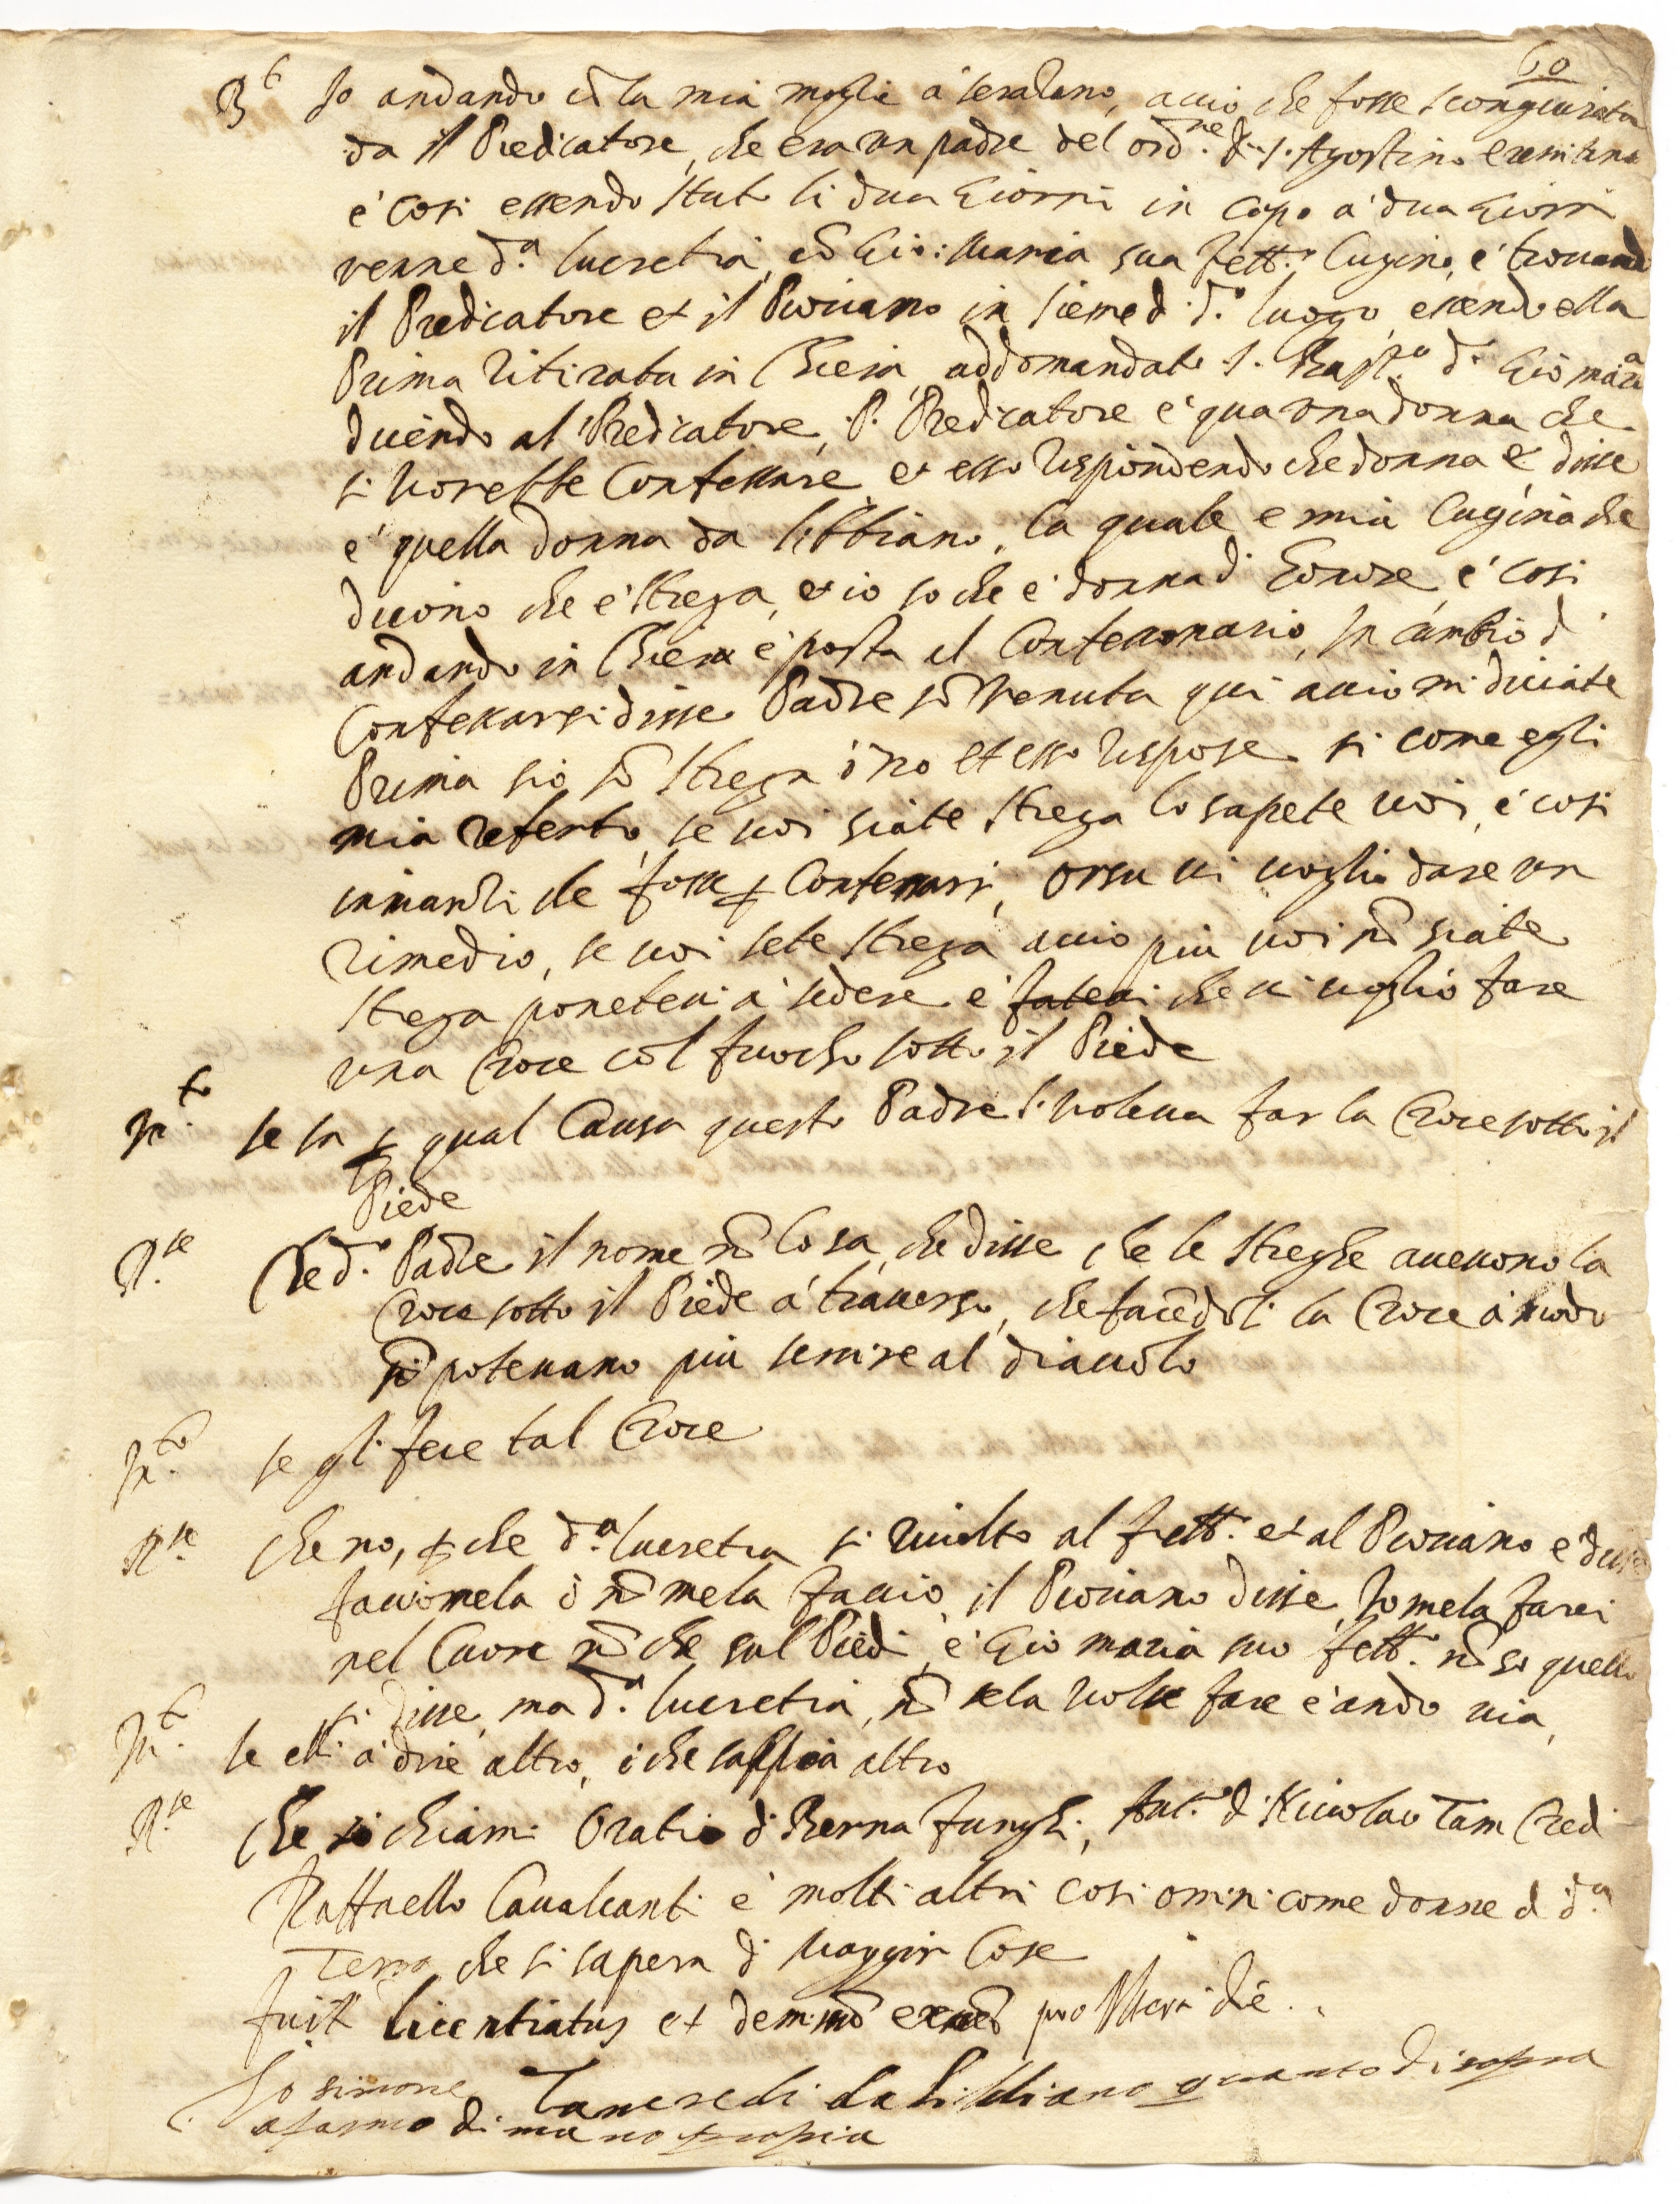 60
R.to Io andando cō la mia moglie à seralano, accio che fosse scongiurata
da il Predicatore, che era un padre del ord.ne di S. Agostino eremitano
e' cosi essendo stato li dua giorni in capo a' dua giorni
venne d.a lucretia, cō Gio: Maria sua frett.o Cugino, e' trovando
il Predicatore et il Piovano in sieme d. d.o luogo, essendo ella
Prima ritirata in Chiesa, addomandato d. Gio mari.a
dicendo al Predicatore, P. Predicatore e' qua una donna che
si vorebbe Confessare et esso rispondendo che donna e' disse
e' quella donna da libbiano, la quale e mia Cugina che
dicono che e' strega, et io so che e' donna d' honore, e' cosi
andando in Chiesa e' posta al Confessonario, in cambio d'
Confessarsi disse Padre sō venuta qui accio mi diciate
Prima sio sō strega ò no et esso rispose si come egli
mia referto, se voi siate strega lo sapete voi, e' cosi
innanzi che fosse p Confessarsi, orsu vi voglio dare un
rimedio, se voi sete strega accio piu voi nō siate
strega ponetevi a' sedere e' fatevi che vi voglio fare
una Croce col fuocho sotto il Piede
In.to se sa p qual Causa questo Padre li voleva far la Croce sotto il
Piede
R.se Che d.o Padre il nome nō lo sa, che disse che le streghe avevono la
Croce sotto il Piede a' traverso, che facēdoli la Croce a' modo
nō potevano piu servire al diavolo
In.to se gli fece tal Croce
R.se che no, p che d.a lucretia si rivolto al frett.o et al Piovano e disse
facciomela ò nō mela faccio, il Piovano disse, Io mela farei
nel Cuore nō che sul Piedi, e' Gio maria suo frett.o nō so quello
si disse, ma d.a lucretia, nō sela volse fare e' ando via,
In.to se elli à dire altro, ò che sappia altro
R.se che si chiami Oratio di Berna funghi, Ant.o di Niccolao Tam Credi
Raffaello Cavalcanti e' molti altri cosi omini come donne d d.a
Terra che si sapera di maggior Cose
fuit licentiatus et demmō pro Meri die.
Io simone Tancredi da Libbiano quanto di sopra
afermo di mano propia